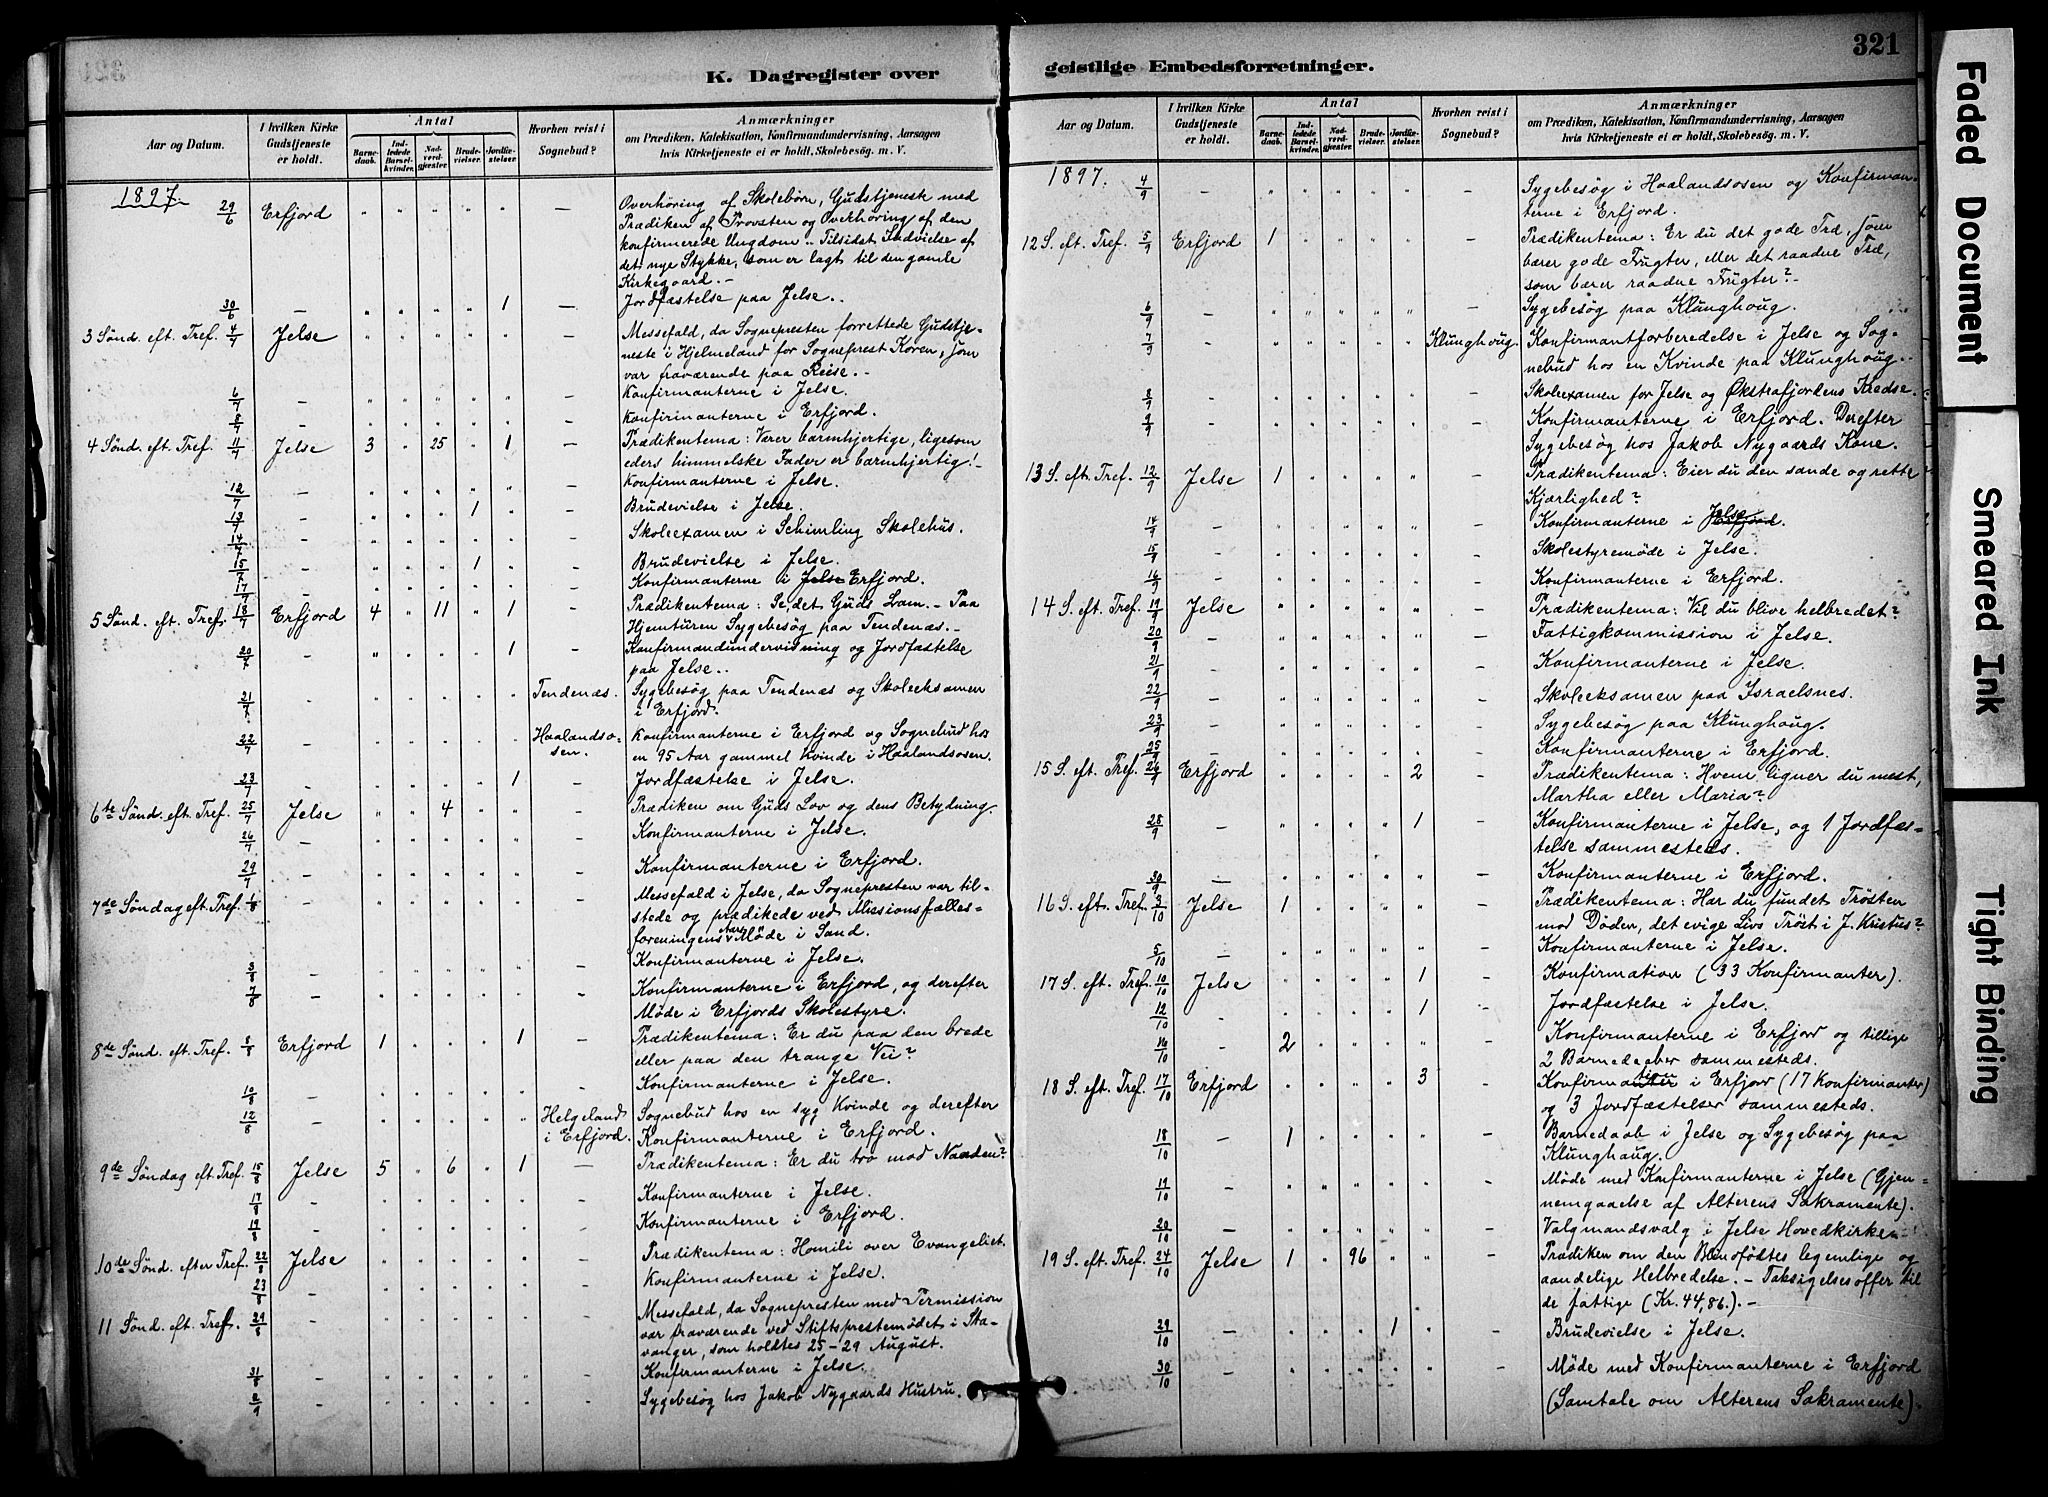 K. Dagregister over
Aar og Datum.
I hvilken Kirke Gudstjeneste er holdt.
Antal
Barnedaab.
Indledede Barselkvinder.
Nadverdgjester
Brudevielser.
Jordfæstelser
Hvorhen reist i Sognebud?
Anmærkninger
om Prædiken, Katekisation, Konfirmandundervisning, Aarsagen
hvis Kirketjeneste ei er holdt, Skolebesøg. m. V.
1897.
29/6 Erfjord " " " " " — Overhøring af Skolebørn, Gudstjeneste med
Prædiken af Provsten og Overhøring af den
konfirmerede Ungdom.. Tilsidst Indvielse af
det nye Stykke, som er lagt til den gamle
Kirkegaard. -
30/6 — " " " " 1 — Jordfæstelse paa Jelse..
3 Sønd. eft. Tref. 4/7 Jelse " " " " " — Messefald, da Sognepresten forrettede Gudstje-
neste i Hjelmeland for Sogneprest Koren, som
var fraværende paa Reise. -
6/7 — " " " " " — Konfirmanterne i Jelse.
8/7 — " " " " " — Konfirmanterne i Erfjord.
4 Sønd. eft. Tref. 11/7 Jelse 3 " 25 " 1 — Prædikentema: Værer barmhjertige, ligesom
eders himmelske Fader er barmhjertig! -
12/7 — " " " " " — Konfirmanterne i Jelse.
13/7 — " " " 1 " — Brudevielse i Jelse.
14/7 — " " " " " — Skoleexamen i Schimling Skolehus.
15/7 — " " " 1 " — Brudevielse i Jelse.
17/7 — " " " " " — Konfirmanterne i Jelse Erfjord.
5 Sønd. eft. Tref. 18/7 Erfjord 4 " 11 " 1 — Prædikentema: Se, det Guds Lam. - Paa
Hjemturen Sygebesøg paa Tendenæs. -
20/7 — " " " " 1 — Konfirmandundervisning og Jordfæstelse
paa Jelse..
21/7 — " " " " " Tendenæs. Sygebesøg paa Tendenæs og Skoleeksamen
i Erfjord.
22/7 — " " " " " Haalandso- Konfirmanterne i Erfjord og Sognebud hos
sen. en 95 Aar gammel Kvinde i Haalandsosen.
23/7 — " " " " 1 — Jordfæstelse i Jelse.
6te Sønd. eft. Tref. 25/7 Jelse " " 4 " " — Prædiken om Guds Lov og dens Betydning.
26/7 — " " " " " — Konfirmanterne i Jelse.
29/7 — " " " " " — Konfirmanterne i Erfjord.
7de Søndag eft. Tref. 1/8 — " " " " " — Messefald i Jelse, da Sognepresten var til-
stede og prædikede ved Missionsfælles-
foreningens Aars Møde i Sand.
3/8 — " " " " " — Konfirmanterne i Jelse.
7/8 — " " " " " — Konfirmanterne i Erfjord, og derefter
Møde i Erfjords Skolestyre.
8de Sønd. eft. Tref. 8/8 Erfjord 1 " " " 1 — Prædikentema: Er du paa den brede
eller paa den trange Vei?
10/8 — " " " " " — Konfirmanterne i Jelse.
12/8 — " " " " " Helgeland Sognebud hos en syg Kvinde og derefter
i Erfjord. Konfirmanterne i Erfjord.
9de Søndag eft. Tref. 15/8 Jelse 5 " 6 " 1 — Prædikentema: Er du tro mod Naaden?
17/8 — " " " " " — Konfirmanterne i Jelse.
19/8 — " " " " " — Konfirmanterne i Erfjord.
10de Sønd. efter Tref. 22/8 Jelse " " " " " — Prædikentema: Homili over Evangeliet.
23/8 — " " " " " — Konfirmanterne i Jelse.
11 Sønd. eft. Tref. 29/8 — " " " " " — Messefald, da Sognepresten med Permission
var fraværende ved Stiftsprestemødet i Sta-
vanger, som holdtes 25-29 August.
31/8 — " " " " " — Konfirmanterne i Jelse.
2/9 — " " " " " — Sygebesøg hos Jakob Nygaards Hustru.
geistlige Embedsforretninger.
321
Aar og Datum.
I hvilken Kirke Gudstjeneste er holdt.
Antal
Barnedaab.
Indledede Barselkvinder.
Nadverdgjester
Brudevielser.
Jordfæstelser.
Hvorhen reist i Sognebud?
Anmærkninger
om Prædiken, Katekisation, Konfirmandundervisning, Aarsagen
hvis Kirketjeneste ei er holdt, Skolebesøg. m. V.
1897. 4/9 — " " " " " — Sygebesøg i Haalandsosen og Konfirman-
terne i Erfjord.
12 S. eft. Tref. 5/9 Erfjord 1 " " " " — Prædikentema: Er du det gode Træ, som
bærer gode Frugter, eller det raadne Træ,
som bærer raadne Frugter? -
6/9 — " " " " " — Sygebesøg paa Klunghoug.
7/9 — " " " " " Klunghoug. Konfirmantforberedelse i Jelse og Sog-
nebud hos en Kvinde paa Klunghoug..
8/9 — " " " " " — Skoleexamen for Jelse og Økstrafjordens Kredse.
9/9 — " " " " " — Konfirmanterne i Erfjord. Derefter
Sygebesøg hos Jakob Nygaards Kone.
13 S. eft. Tref. 12/9 Jelse 1 " " " " — Prædikentema: Eier du den sande og rette
Kjærlighed?
14/9 — " " " " " — Konfirmanterne i Erfjord Jelse.
15/9 — " " " " " — Skolestyremøde i Jelse.
16/9 — " " " " " — Konfirmanterne i Erfjord.
14 S. eft. Tref. 19/9 Jelse " " " " " — Prædikentema: Vil du blive helbredet?
20/9 — " " " " " — Fattigkommission i Jelse.
21/9 — " " " " " — Konfirmanterne i Jelse.
22/9 — " " " " " — Skoleeksamen paa Israelsnes.
23/9 — " " " " " — Sygebesøg paa Klunghoug.
25/9 — " " " " " — Konfirmanterne i Erfjord.
15 S. eft. Tref. 26/9 Erfjord " " " " 2 — Prædikentema: Hvem ligner du mest,
Martha eller Maria?
28/9 — " " " " 1 — Konfirmanterne i Jelse, og 1 Jordfæs-
telse sammesteds.
30/9 — " " " " " — Konfirmanterne i Erfjord.
16 S. eft. Tref. 3/10 Jelse 1 " " " " — Prædikentema: Har du fundet Trøsten
mod Døden, det evige Livs Trøst i J. Kristus?
5/10 — " " " " " — Konfirmanterne i Jelse.
17 S. eft. Tref. 10/10 Jelse " " " " 1 — Konfirmation (33 Konfirmanter).
12/10 — " " " " 1 — Jordfæstelse i Jelse.
16/10 — 2 " " " " — Konfirmanterne i Erfjord og tillige
2 Barnedaaber sammesteds.
18 S. eft. Tref. 17/10 Erfjord " " " " 3 — Konfirmation i Erfjord (17 Konfirmanter)
og 3 Jordfæstelser sammesteds.
18/10 — 1 " " " " — Barnedaab i Jelse og Sygebesøg paa
Klunghaug.
19/10 — " " " " " — Møde med Konfirmanterne i Jelse (Gjen-
nemgaaelse af Alterens Sakramente).
20/10 — " " " " " — Valgmandsvalg i Jelse Hovedkirke.
19 S. eft. Tref. 24/10 Jelse 1 " 96 " " — Prædiken om den Blindfødtes legemlige og
aandelige Helbredelse. - Taksigelsesoffer til
de fattige (Kr. 44,86.). -
29/10 — " " " 1 " — Brudevielse i Jelse.
30/10 — " " " " " — Møde med Konfirmanterne i Erfjord
(Samtale om Alterens Sakramente).
Faded Document
Smeared Ink
Tight Binding